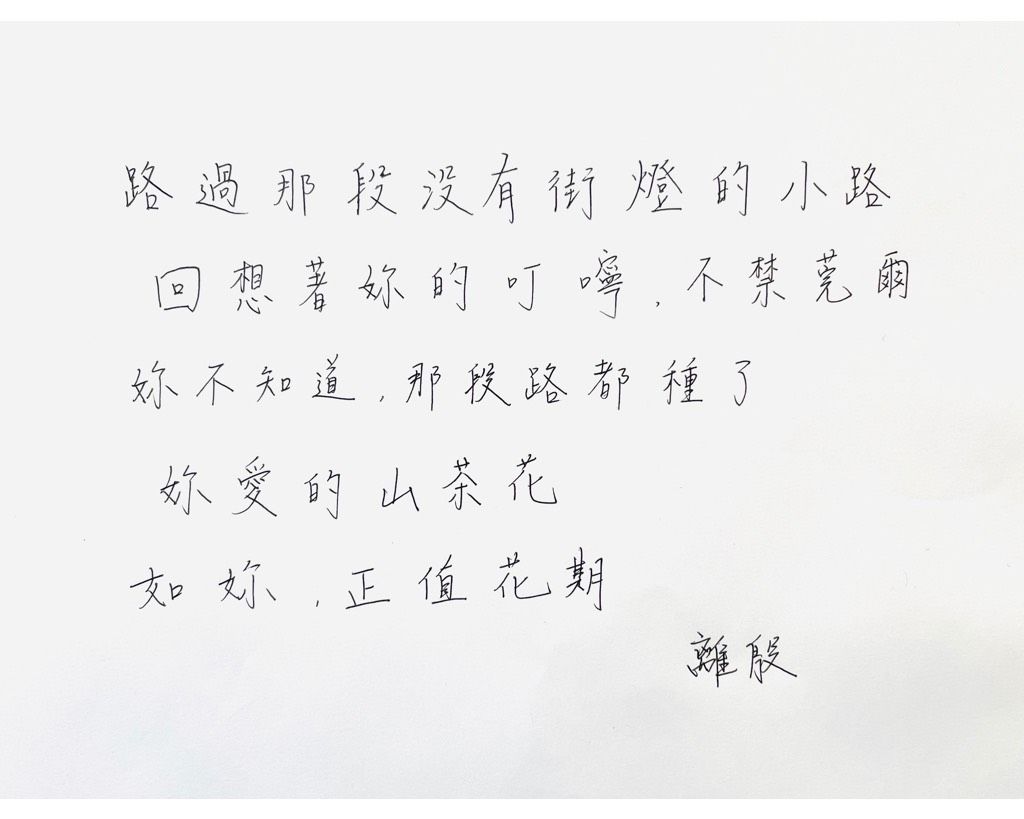 路過那段沒有街燈的小路
回想著妳的叮嚀，不禁莞爾
妳不知道，那段路都種了
妳愛的山茶花
如妳，正值花期
離殷